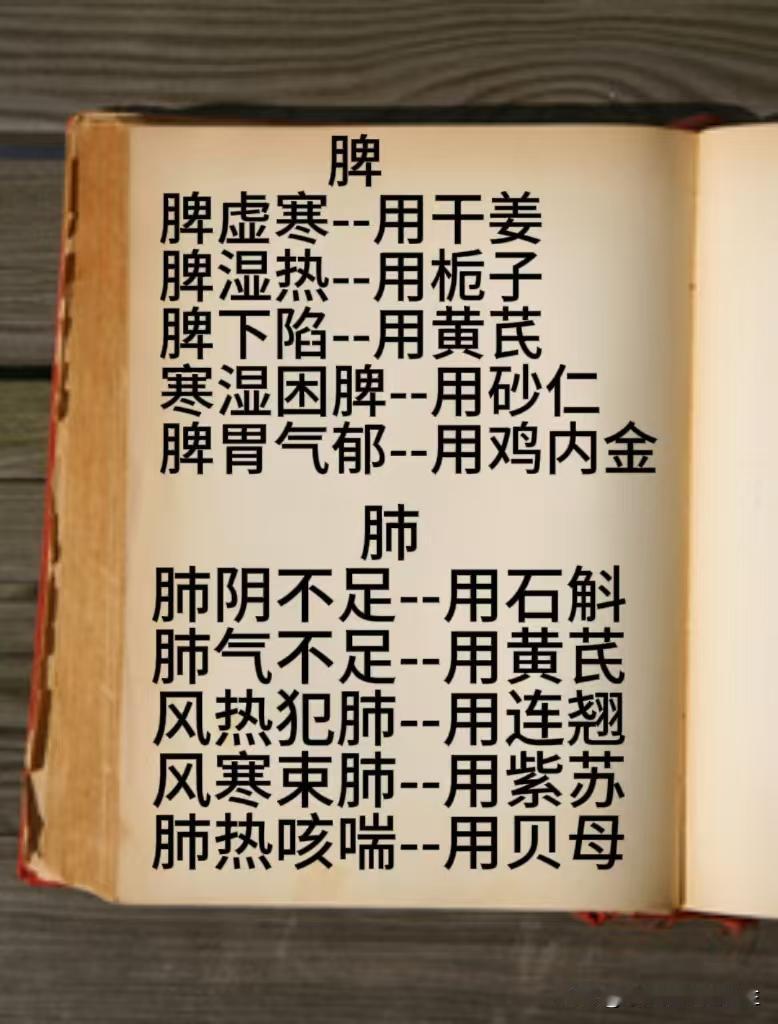 脾
脾虚寒--用干姜
脾湿热--用栀子
脾下陷--用黄芪
寒湿困脾--用砂仁
脾胃气郁--用鸡内金
肺
肺阴不足--用石斛
肺气不足--用黄芪
风热犯肺--用连翘
风寒束肺--用紫苏
肺热咳喘--用贝母